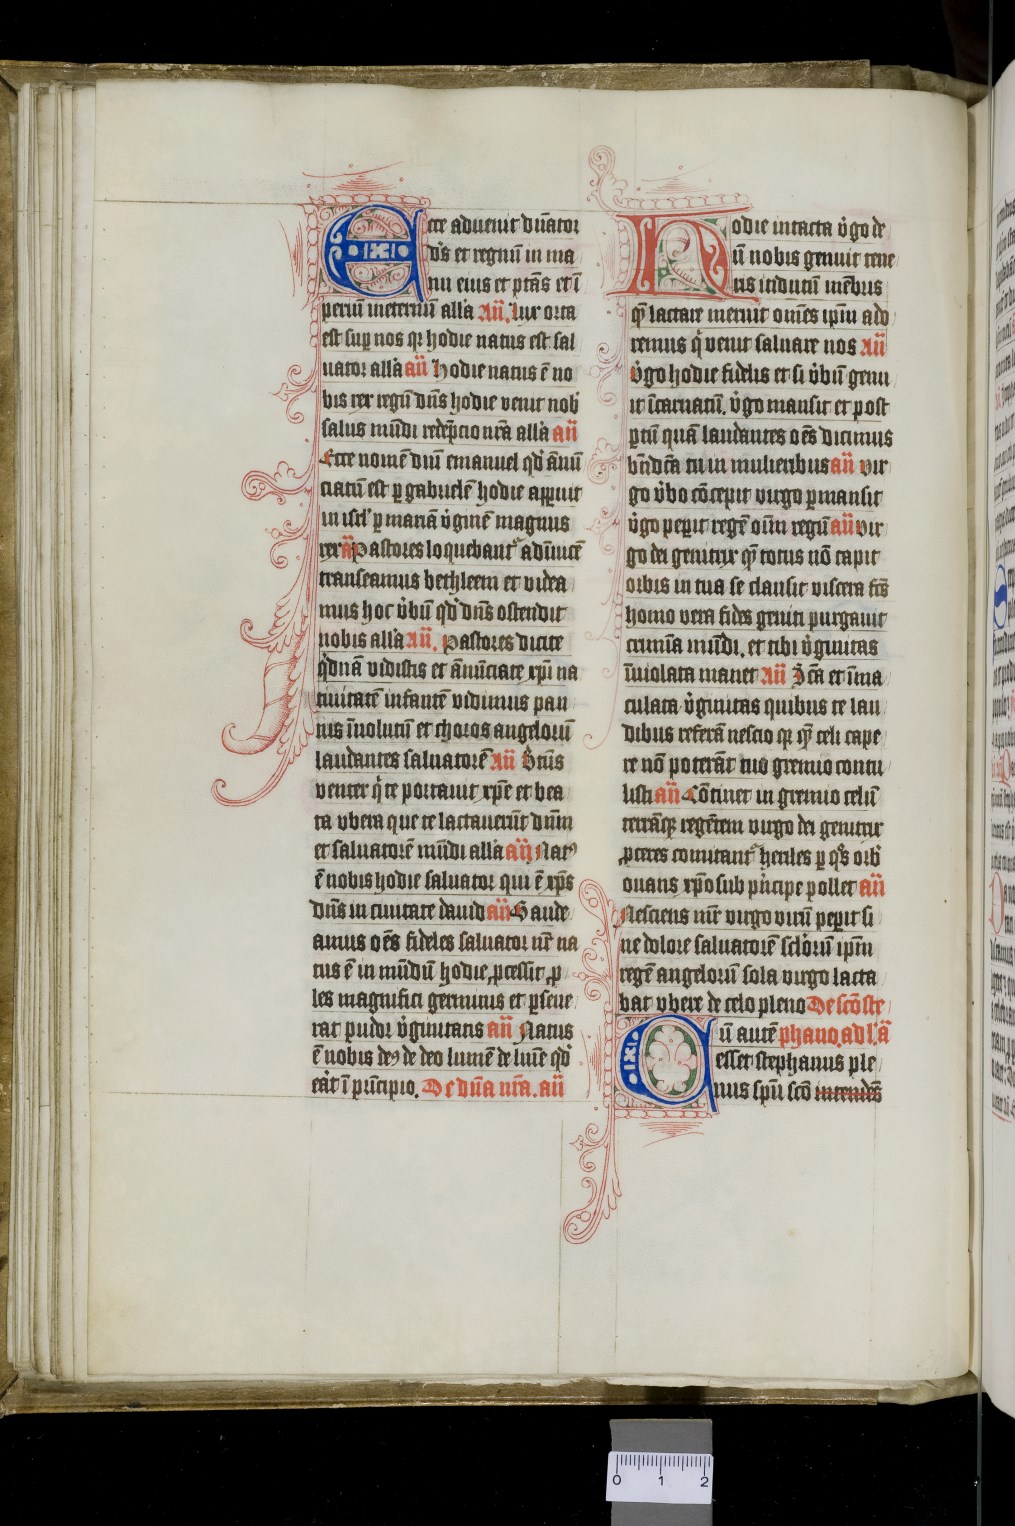 Ecce aduenit dn̄ator
dn̄s et regnū in ma
nu eius et ptās et ī
periū ineternū alĺa Añ. Lux orta
est sup nos qr hodie natus est sal
uator alĺa añ Hodie natus ē no
bis rex regū dn̄s hodie venit nob
salus mūdi redēpcio nr̄a alĺa añ
Ecce nomē dn̄i emanuel qd̓ ānū
ciatū est p gabrielē hodie appuit
in isrl̓ p mariā v̓ginē magnus
rex a᷑ Pastores loquebant᷑ adinuicē
transeamus bethleem et videa
mus hoc v̓bū qd̓ dn̄s ostendit
nobis alĺa Añ. Pastores dicite
qdnā vidistis et ānūciate xp̄i na
tiuitatē infantē vidimus pan
nis īuolutū et choros angelorū
laudantes saluatorē Añ Bt̄us
venter q̓ te portauit xp̄e et bea
ta vbera que te lactauerūt dn̄m
et saluatorē mūdi alĺa añ Natꝰ
ē nobis hodie saluator qui ē xp̄s
dn̄s in ciuitate dauid añ Gaude
amus oēs fideles saluator nr̄ na
tus ē in mūdū hodie ꝓcessit ꝓ
les magnifici germinis et pseue
rat pudor v̓ginitatis añ Natus
ē nobis deꝰ de deo lumē de luīe qd̓
erat ī prīncipio. De dn̄a nr̄a. añ
Hodie intacta v̓go de
ū nobis genuit tene
ris īdutū mēbris
q̄ lactare meruit omēs ipm̄ ado
remus q̓ venit saluare nos Añ
V̓go hodie fidelis et si v̓bū genu
it īcarnatū. v̓go mansit et post
ptū quā laudantes oēs dicimus
bn̄dc̄a tu in mulieribus añ vir
go v̓bo cōcepit virgo pmansit
v̓go pepit regē oīm regū añ vir
go dei genitrix q̄ totus nō capit
orbis in tua se clausit viscera fc̄s
homo vera fides geniti purgauit
crimīa mūdi. et tibi v̓ginitas
īuiolata manet Añ Sc̄a et īma
culata v̓ginitas quibus te lau
dibus referā nescio qr q̄ celi cape
re nō poterāt tuo gremio contu
listi añ Cōtinet in gremio celū
terrāqꝫ regētem virgo dei genitrix
ꝓceres comitant᷑ heriles p q̓s orb̓
ouans xp̄o sub prīcipe pollet añ
Nesciens mr̄ virgo virū pepit si
ne dolore saluatorē sclorū ipm̄
regē angelorū sola virgo lacta
bat vbere de celo pleno De scō ste
Cū autē phano. ad l̓. a᷑
esset stephanus ple
nus spū scō intendēs